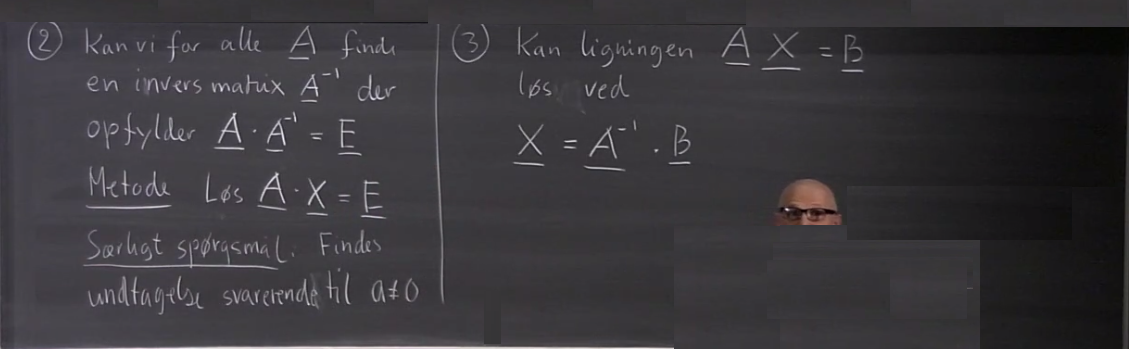 ② Kan vi for alle A finde
en invers matrix A⁻¹ der
opfylder A · A⁻¹ = E
Metode Løs A · X = E
Særligt spørgsmål: Findes
undtagelse svarerende til a≠0
③ Kan ligningen A X = B
løs ved
X = A⁻¹ · B